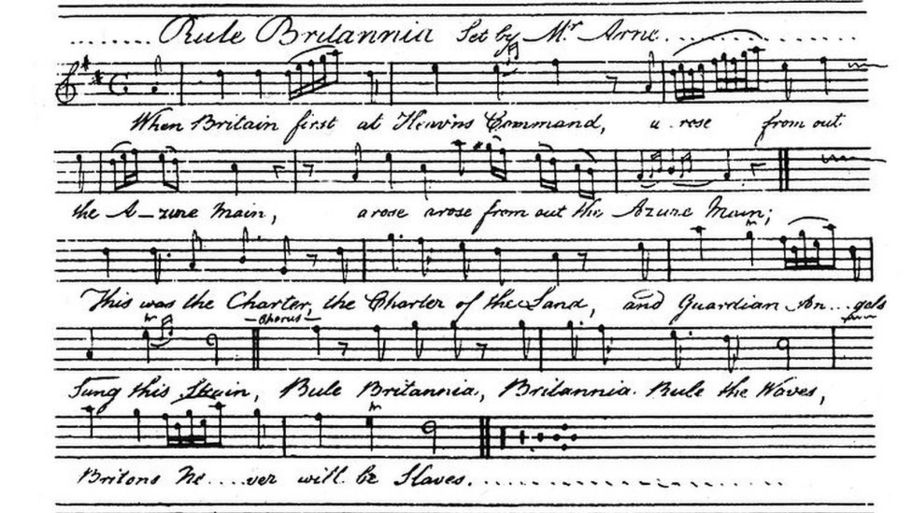 Rule Britannia Set by Mr. Arne.
When Britain first at Heav'ns Command, a rose from out
the A-zure Main, arose arose from out the Azure Main;
This was the Charter, the Charter of the Land, and Guardian An...gels
-Chorus-
Sung this Strain, Rule Britannia, Britannia Rule the Waves,
Britons Ne....ver will be Slaves.